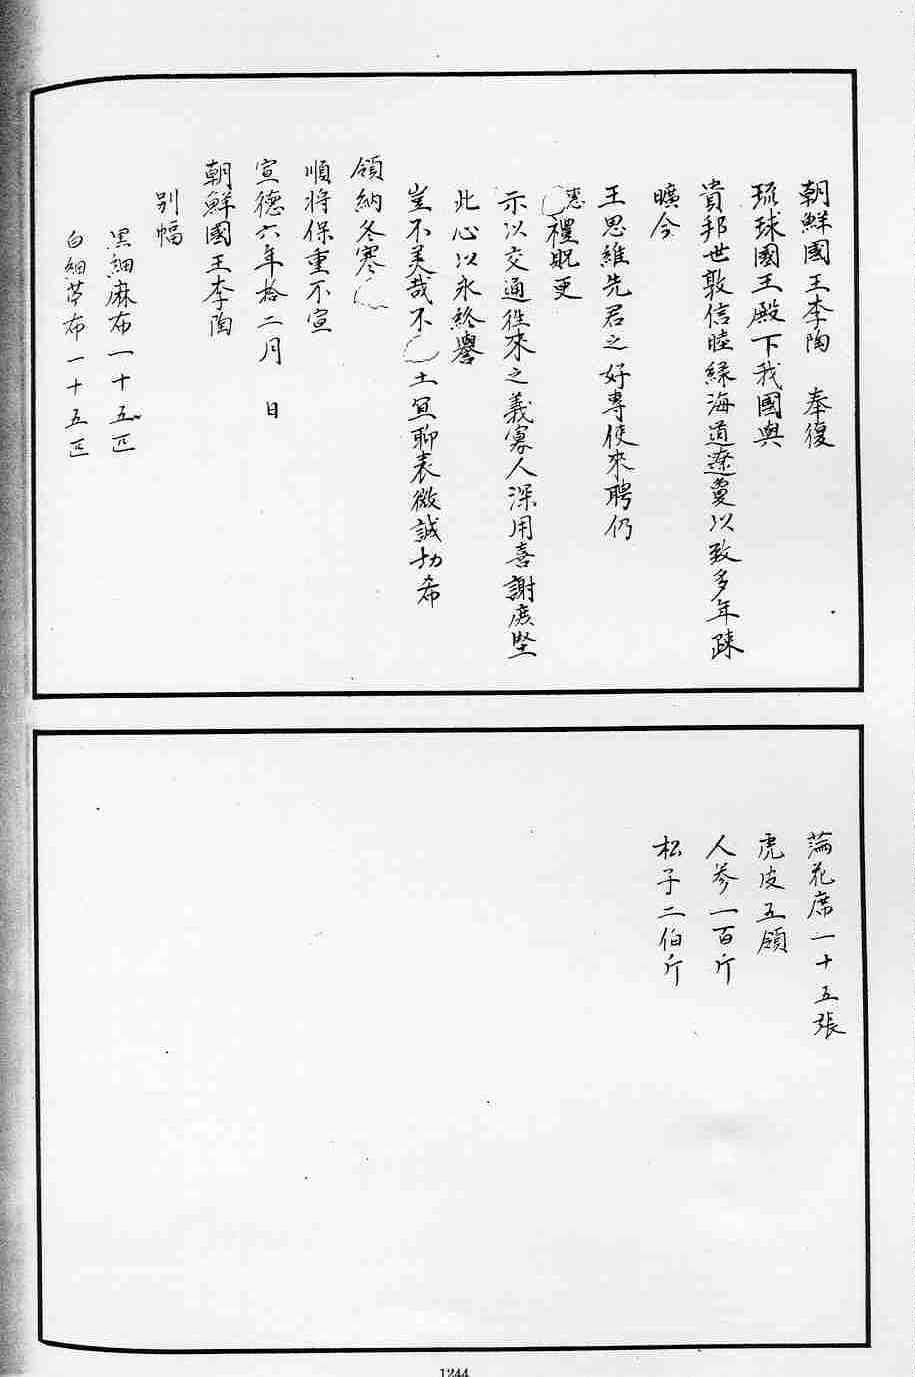 朝鮮國王李陶　奉復
琉球國王殿下我國與
貴邦世敦信睦緣海道遼敻以致多年踈
曠今
王思維先君之好專使來聘仍
惠禮貺更
示以交通徃來之義寡人深用喜謝庶堅
此心以永終譽
豈不美哉不土宜聊表微誠切希
領納冬寒
順將保重不宣
宣德六年拾二月　日
朝鮮國王李陶
別幅
黒細麻布一十五匹
白細苧布一十五匹
蒲花席一十五張
虎皮五領
人参一百斤
松子二伯斤
1244